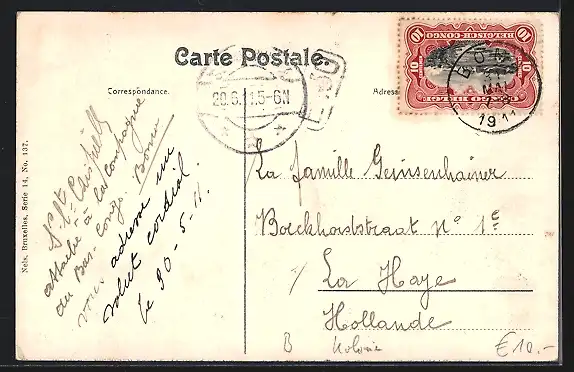 Carte Postale.
Correspondance.
Adresse
BELGISCH-CONGO
10 10
CONGO BELGE
BOMA
MAI
1911
20.6.11.5-6N
Nels, Bruxelles, Serie 14, No. 137.
attaché à la Compagnie
du Bas-Congo. Boma
vous adresse un
salut cordial.
le 30-5-11.
La famille Geinsenhainer
Borckhorststraat n° 1e
La Haye
Hollande
B Kolonie €10.-